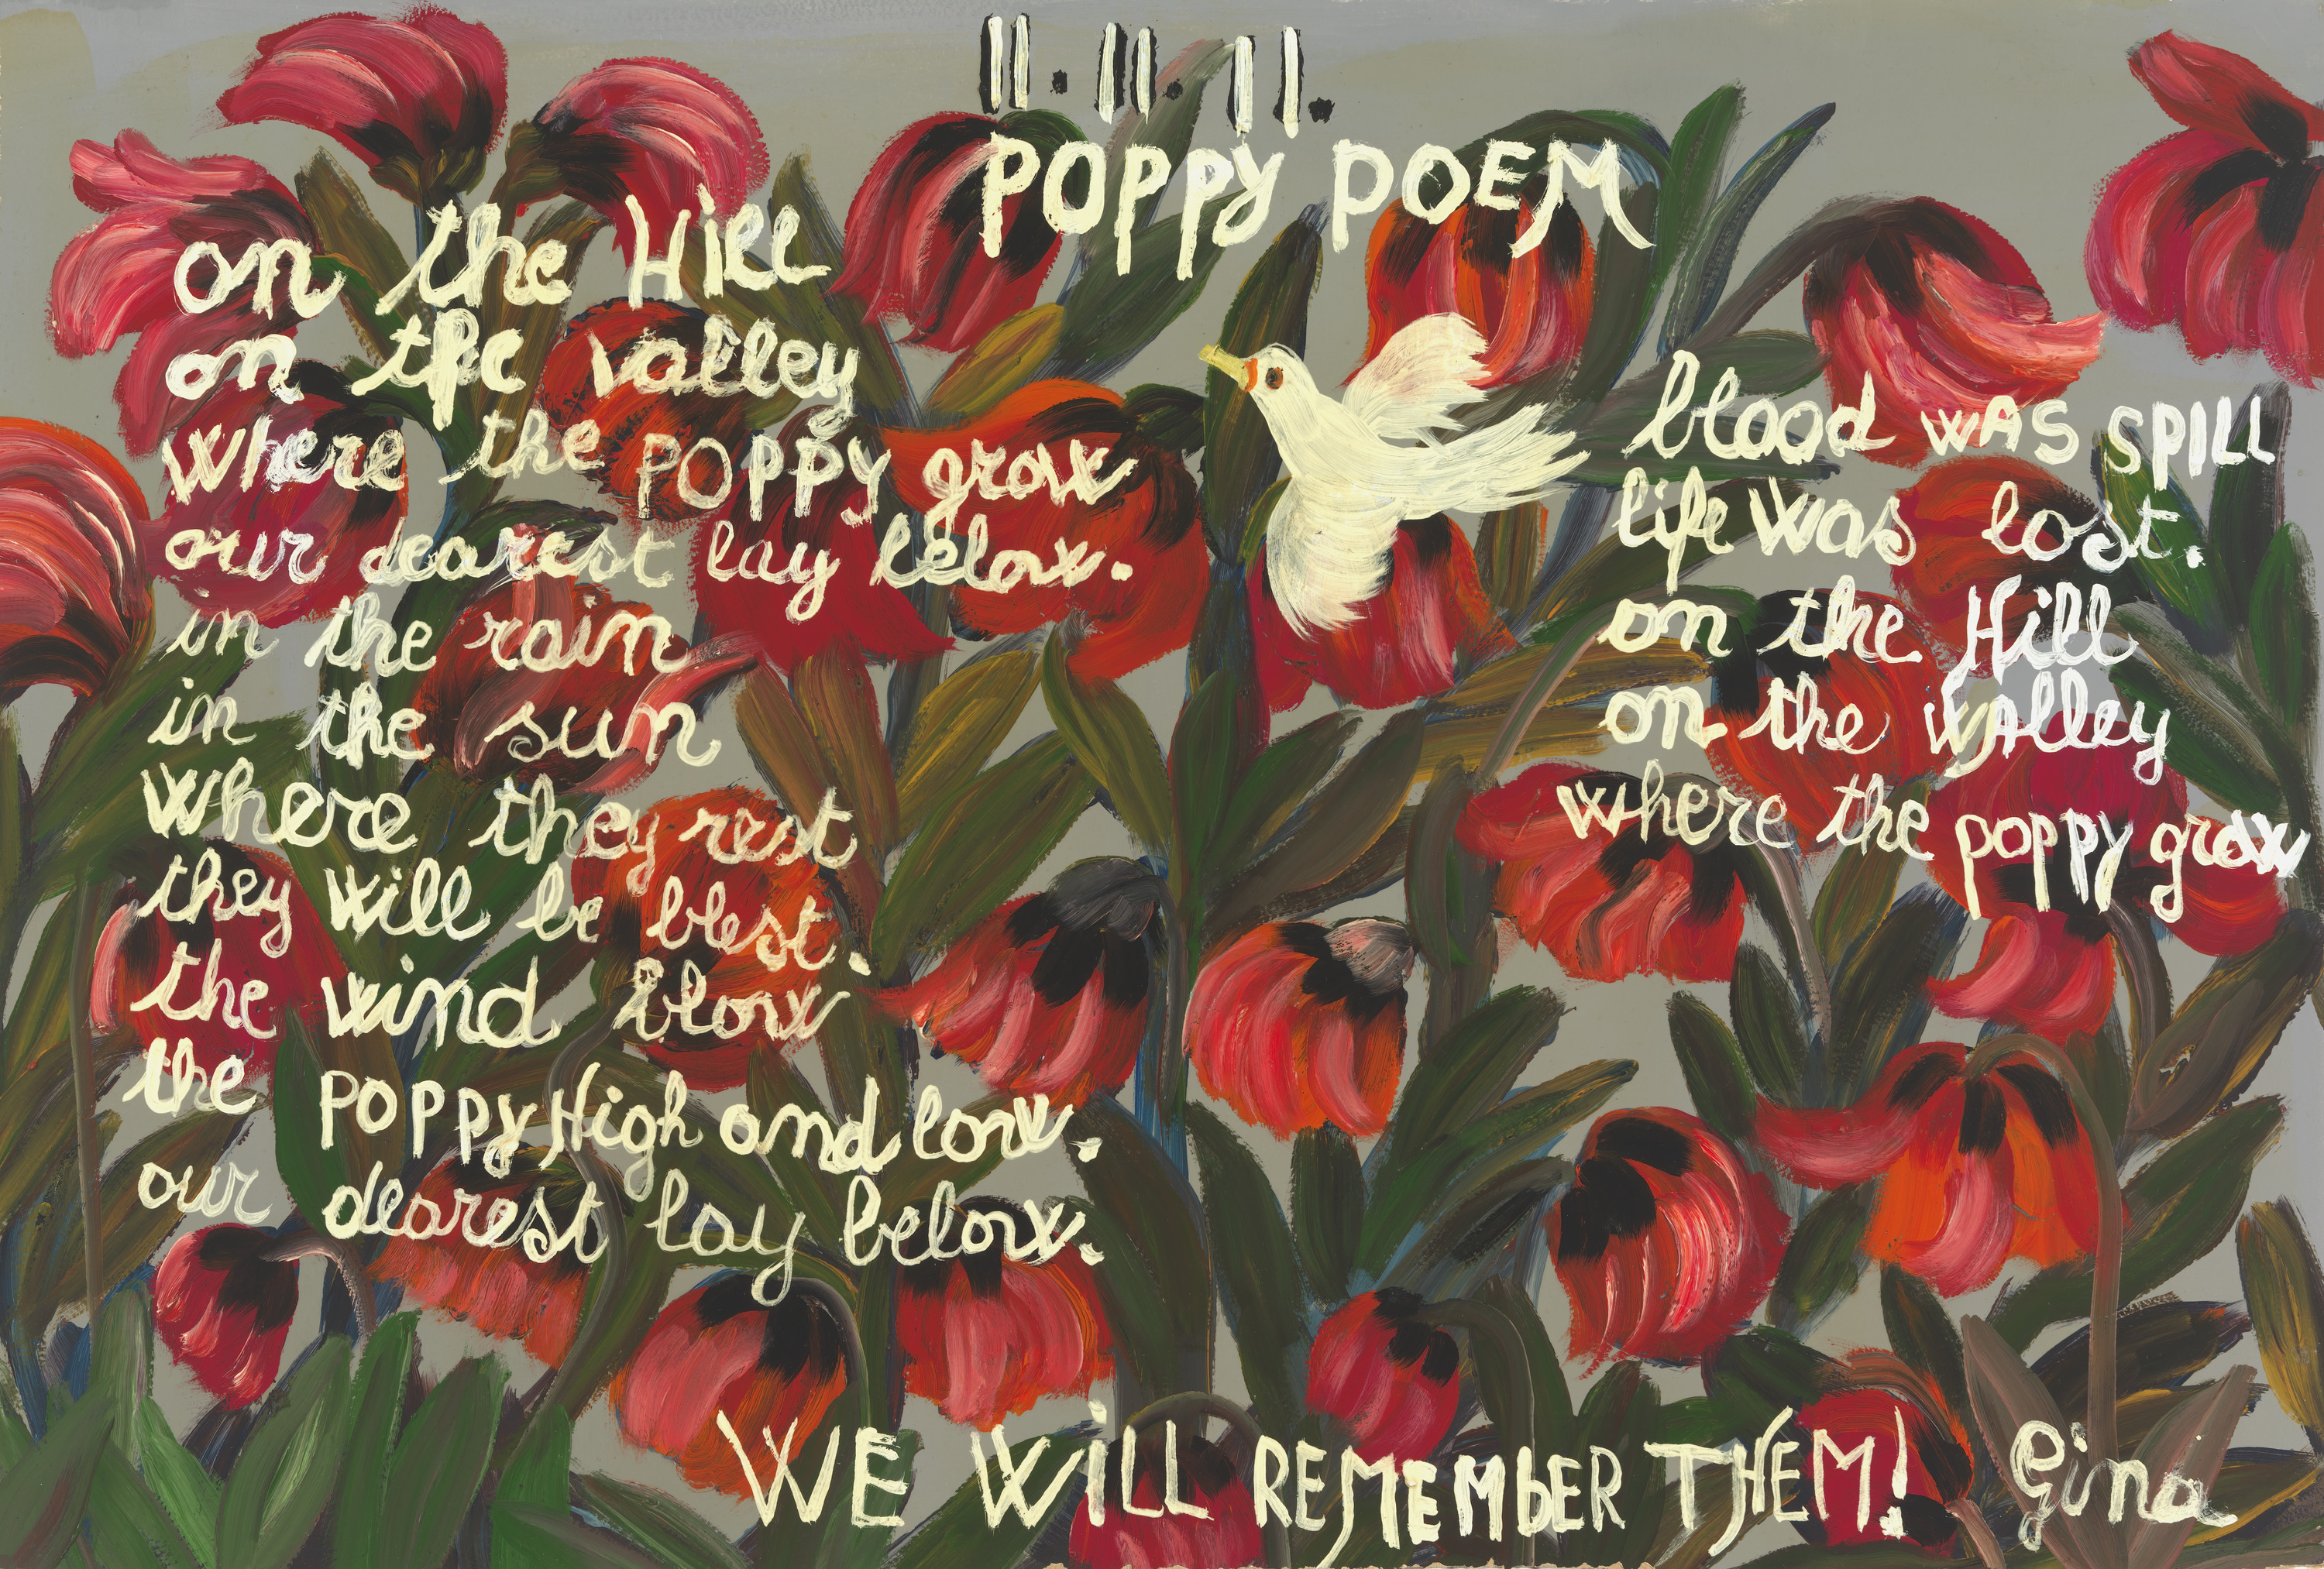 11.11.11.
POPPY POEM
on the Hill
on the valley
where the POPPY grow
our dearest lay below.
in the rain
in the sun
where they rest
they will be blest.
the wind blow
the POPPY High and low.
our dearest lay below.
blood WAS SPILL
life was lost.
on the Hill
on the vAlley
where the poppy grow
WE WILL REMEMBER THEM!
Gina